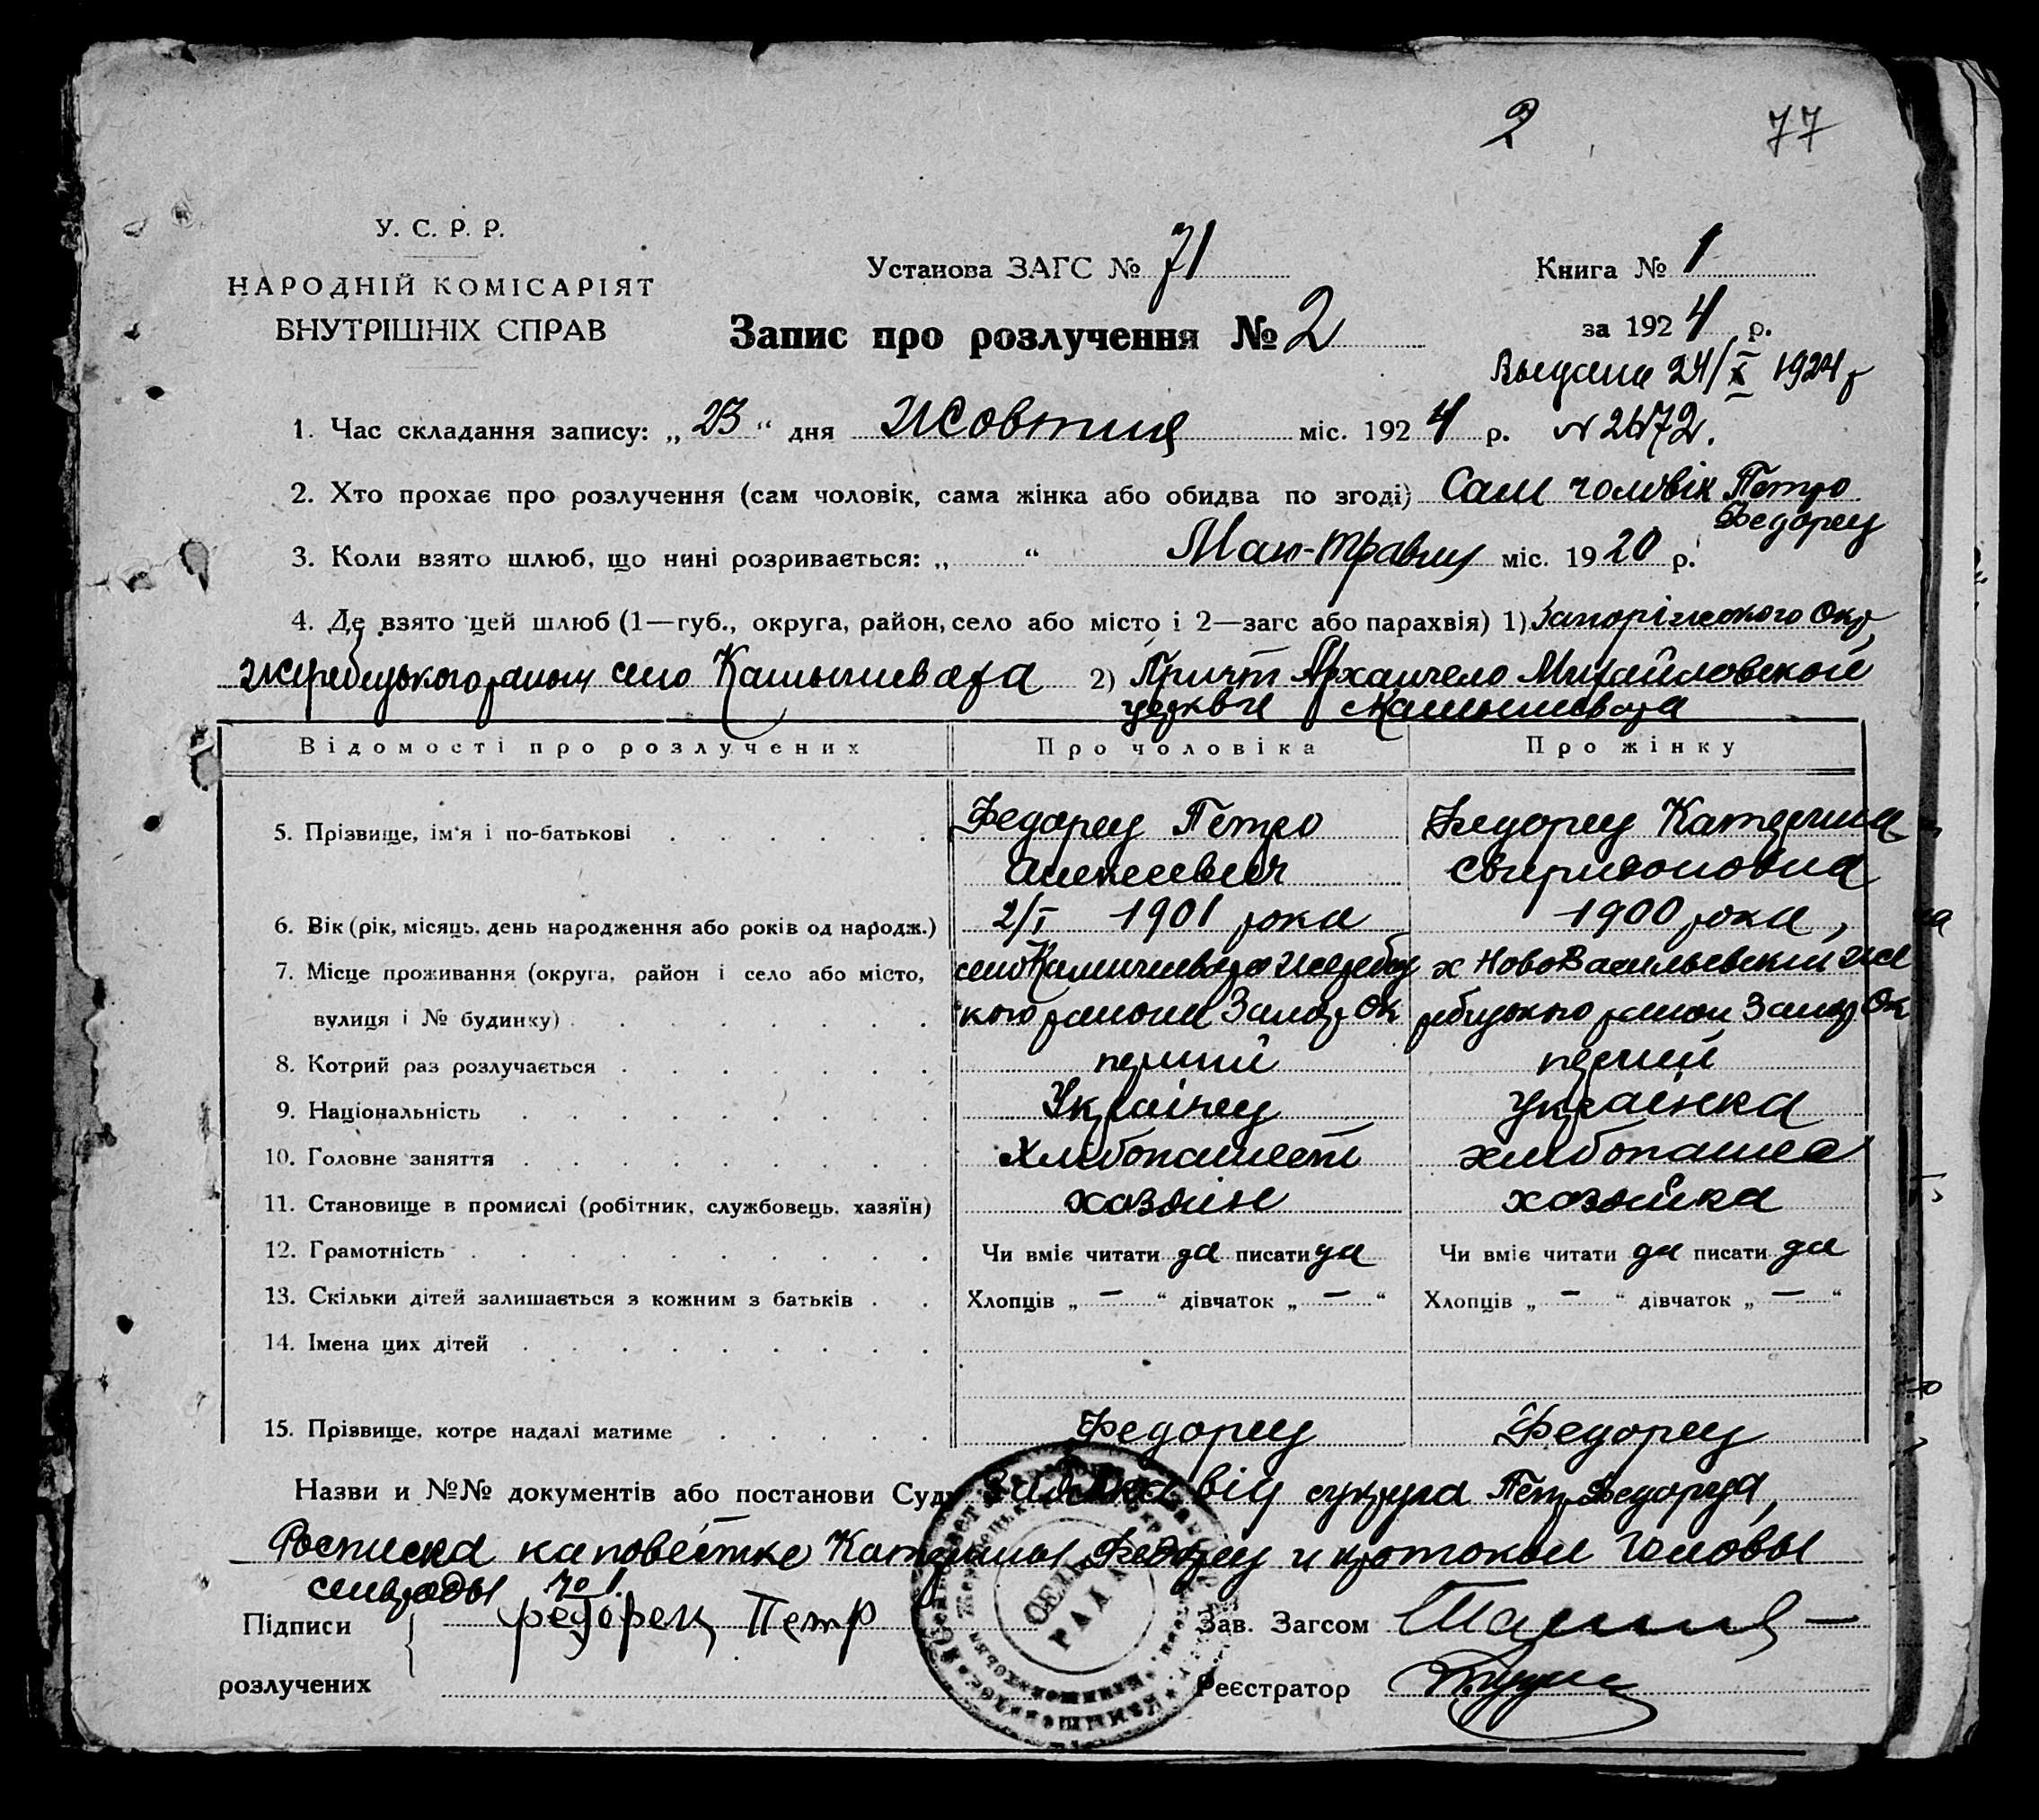 2 77
У. С. Р. Р.
НАРОДНІЙ КОМІСАРІЯТ
ВНУТРІШНІХ СПРАВ
Установа ЗАГС № 71
Книга № 1
за 1924 р.
Запис про розлучення № 2
Выдана 24/X 1924 г
1. Час складання запису: „23“ дня Жовтня міс. 1924 р. № 2472.
2. Хто прохає про розлучення (сам чоловік, сама жінка або обидва по згоді) Сам чоловік Петро
Федорец
3. Коли взято шлюб, що нині розривається: „ “ Мая-травня міс. 1920 р.
4. Де взято цей шлюб (1—губ., округа, район, село або місто і 2—загс або парахвія) 1) Запоріжского Окр,
Жеребецького району село Камышеваха 2) Причт Архангело Михайловской
церкви с Камышеваха
Відомості про розлучених Про чоловіка Про жінку
5. Прізвище, ім'я і по-батькові Федорец Петро Федорец Катерина
Алексеевич Свиридоновна
6. Вік (рік, місяць, день народження або років од народж.) 2/I 1901 рока 1900 рока,
7. Місце проживання (округа, район і село або місто, село Камишеваха Жеребец х НовоВасильевский Же
вулиця і № будинку) кого району Запор Ок ребецького району Запор Ок
8. Котрий раз розлучається перший перший
9. Національність Українец українка
10. Головне заняття хлібопашест хлибопашеа
11. Становище в промислі (робітник, службовець, хазяїн) хозяін хозяйка
12. Грамотність Чи вміє читати да писати да Чи вміє читати да писати да
13. Скільки дітей залишається з кожним з батьків Хлопців „ — “ дівчаток „ — “ Хлопців „ — “ дівчаток „ — “
14. Імена цих дітей
15. Прізвище, котре надалі матиме Федорец Федорец
Назви и №№ документів або постанови Суду Заявка від супруга Петр Федорца,
Росписка на повестке Катерины Федорец и протокол Головы
сельрады № 1.
Підписи Федорец Петр Зав. Загсом
розлучених Реєстратор
СЕЛЬ
РАДА